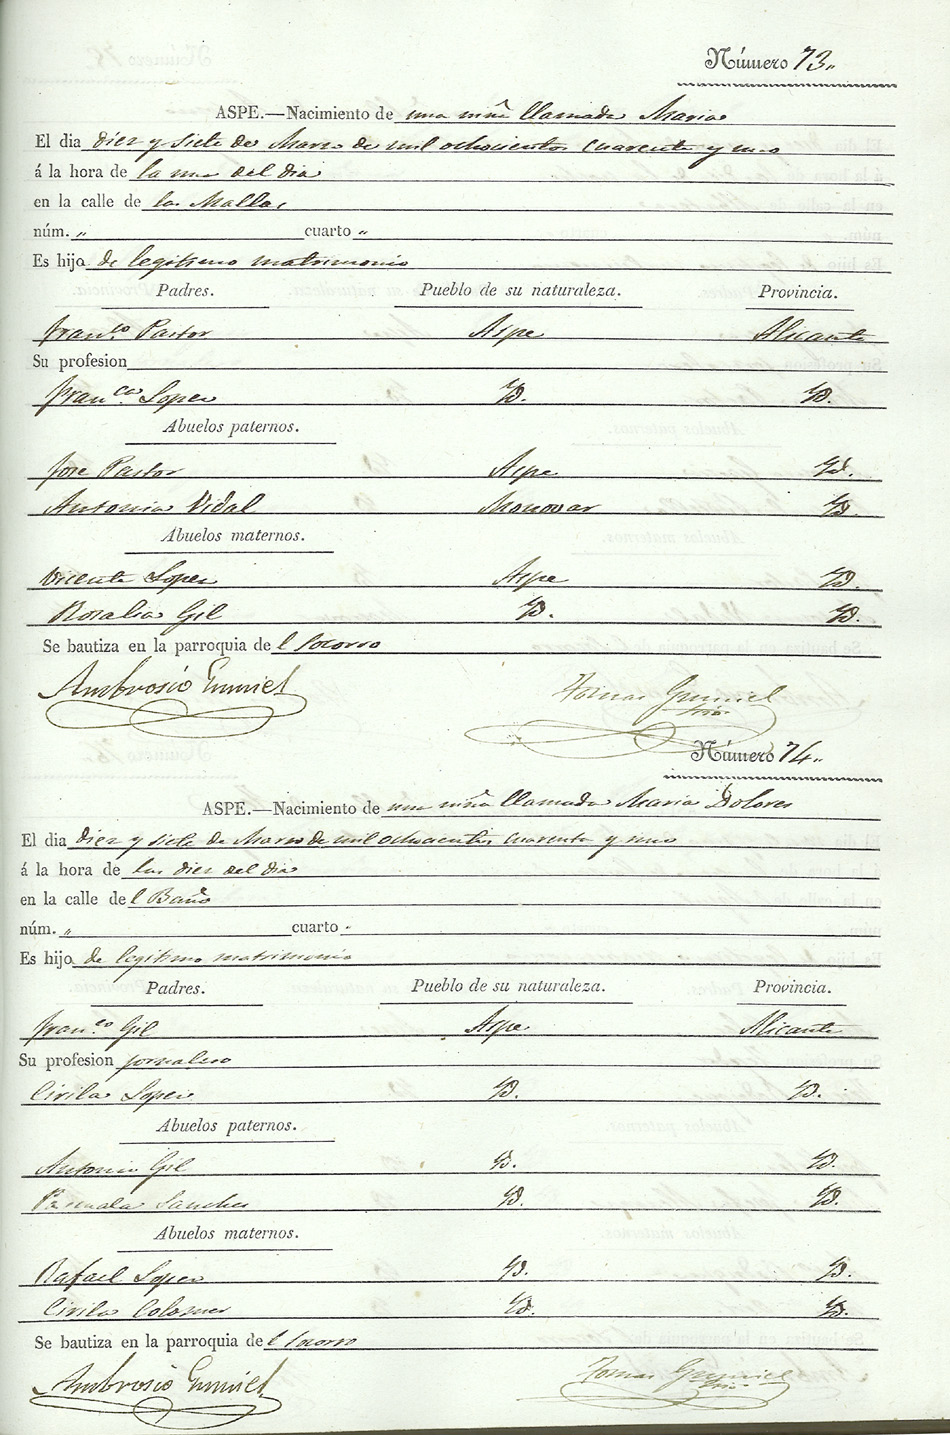 Número 73.
ASPE.—Nacimiento de una niña llamada Maria
El dia diez y siete de Marzo de mil ochocientos cuarenta y uno
á la hora de la una del dia
en la calle de la Malla,
núm. „ cuarto „
Es hijo de legitimo matrimonio
Padres. Pueblo de su naturaleza. Provincia.
Fran.co Pastor Aspe Alicante
Su profesion
Fran.ca Lopez Yd. Yd.
Abuelos paternos.
Jose Pastor Aspe Yd.
Antonia Vidal Monovar Yd.
Abuelos maternos.
Vicente Lopez Aspe Yd.
Rosalia Gil Yd. Yd.
Se bautiza en la parroquia de l Socorro
Ambrosio Tomas
Número 74.
ASPE.—Nacimiento de una niña llamada Maria Dolores
El dia diez y siete de Marzo de mil ochocientos cuarenta y uno
á la hora de las diez del dia
en la calle de l Baño
núm. „ cuarto „
Es hijo de legitimo matrimonio
Padres. Pueblo de su naturaleza. Provincia.
Fran.co Gil Aspe Alicante
Su profesion jornalero
Cirila Lopez Yd. Yd.
Abuelos paternos.
Antonio Gil Yd. Yd.
Pascuala Sanchez Yd. Yd.
Abuelos maternos.
Rafael Lopez Yd. Yd.
Cirila Colomer Yd. Yd.
Se bautiza en la parroquia de l Socorro
Ambrosio Tomas